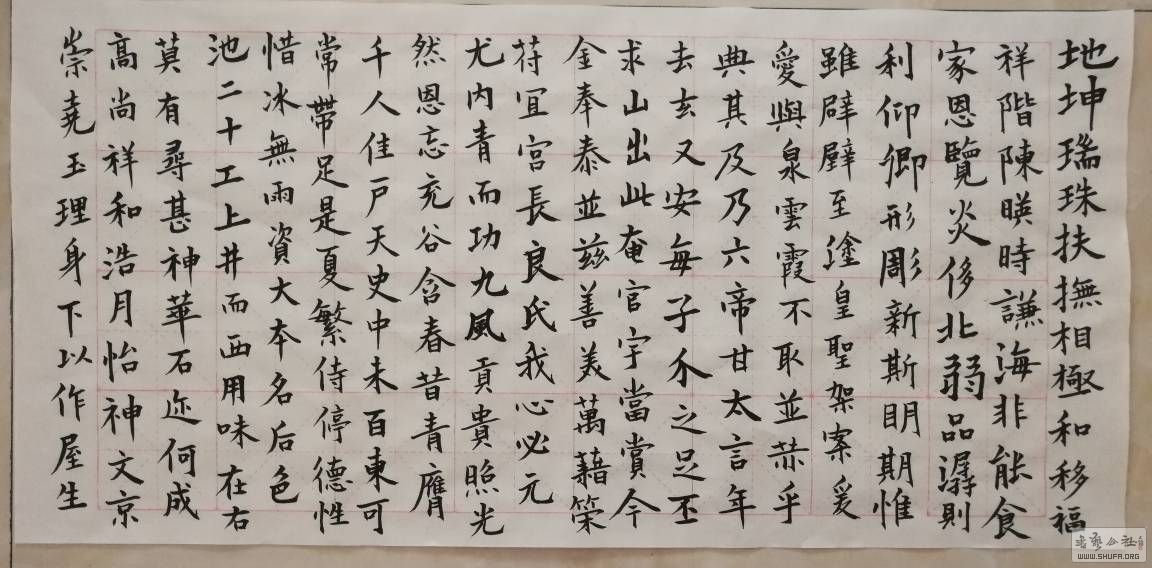 地坤瑞珠扶撫相極和移福
祥階陳暎時謙海非能食
家恩覽炎侈北弱品潺則
利仰卿形彫新斯明期惟
雖辟壁至塗皇聖架案爰
愛與泉雲霞不取並恭乎
典其及乃六帝甘太言年
去玄又安每子禾之足丕
求山出此奄官宇當賞今
金奉泰並兹善美萬藉築
苻宜宫長良氏我心必元
尤内青而功九風貢貴照光
然恩忘充谷含春昔青膺
千人佳戸天史中未百東可
常帶足是夏繁侍停德性
惜冰無雨資大本名后色
池二十工上井而西用味在右
莫有尋甚神華石迩何成
高尚祥和浩月怡神文京
崇堯玉理身下以作屋生
書藝公社
WWW.SHUFA.ORG